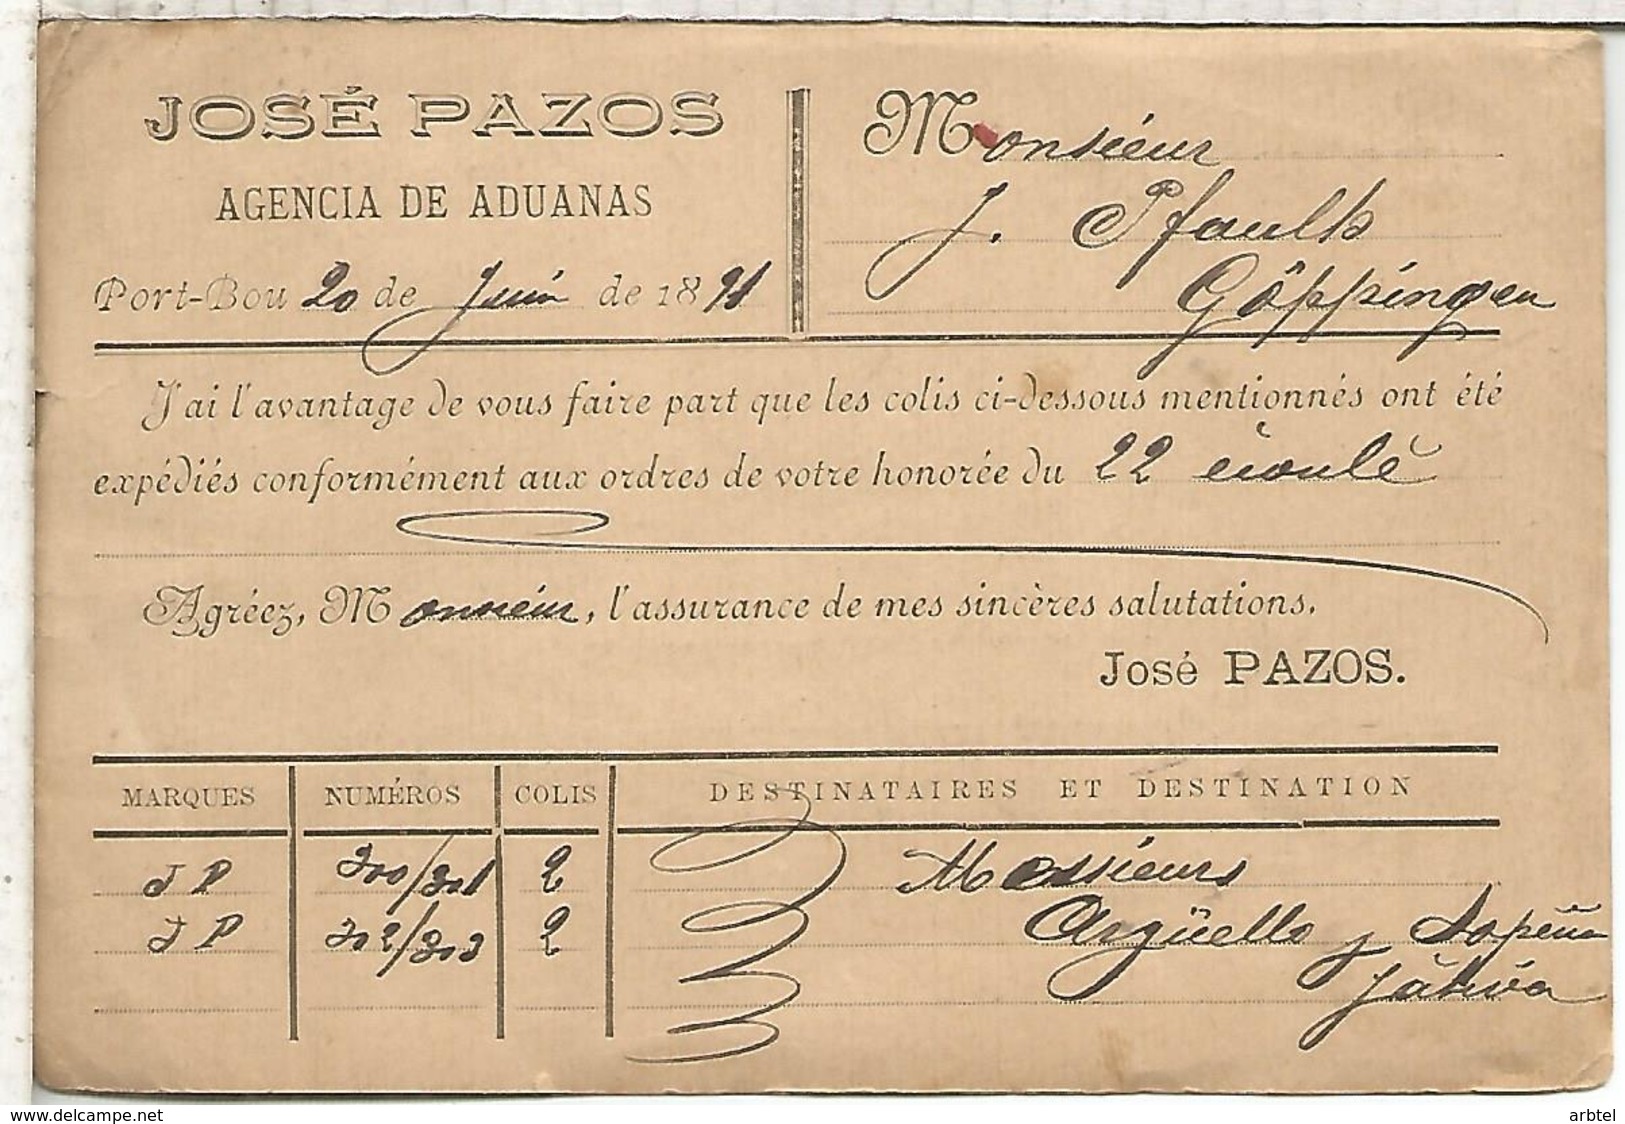 JOSÉ PAZOS
AGENCIA DE ADUANAS
Port-Bou 20 de Juin de 1891
Monsieur
J. Pfaulh
Göppingen
J'ai l'avantage de vous faire part que les colis ci-dessous mentionnés ont été
expédiés conformément aux ordres de votre honorée du 22 écoulé
Agréez, Monsieur, l'assurance de mes sincères salutations.
José PAZOS.
MARQUES NUMÉROS COLIS DESTINATAIRES ET DESTINATION
JP 300/301 2 Messieurs
JP 302/303 2 Argüello y Sopeña
Játiva
delcampe.net
arbtel